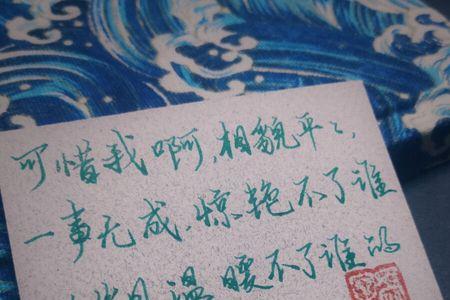 可惜我啊,相貌平平,
一事无成,惊艳不了谁
岁月温暖不了谁的